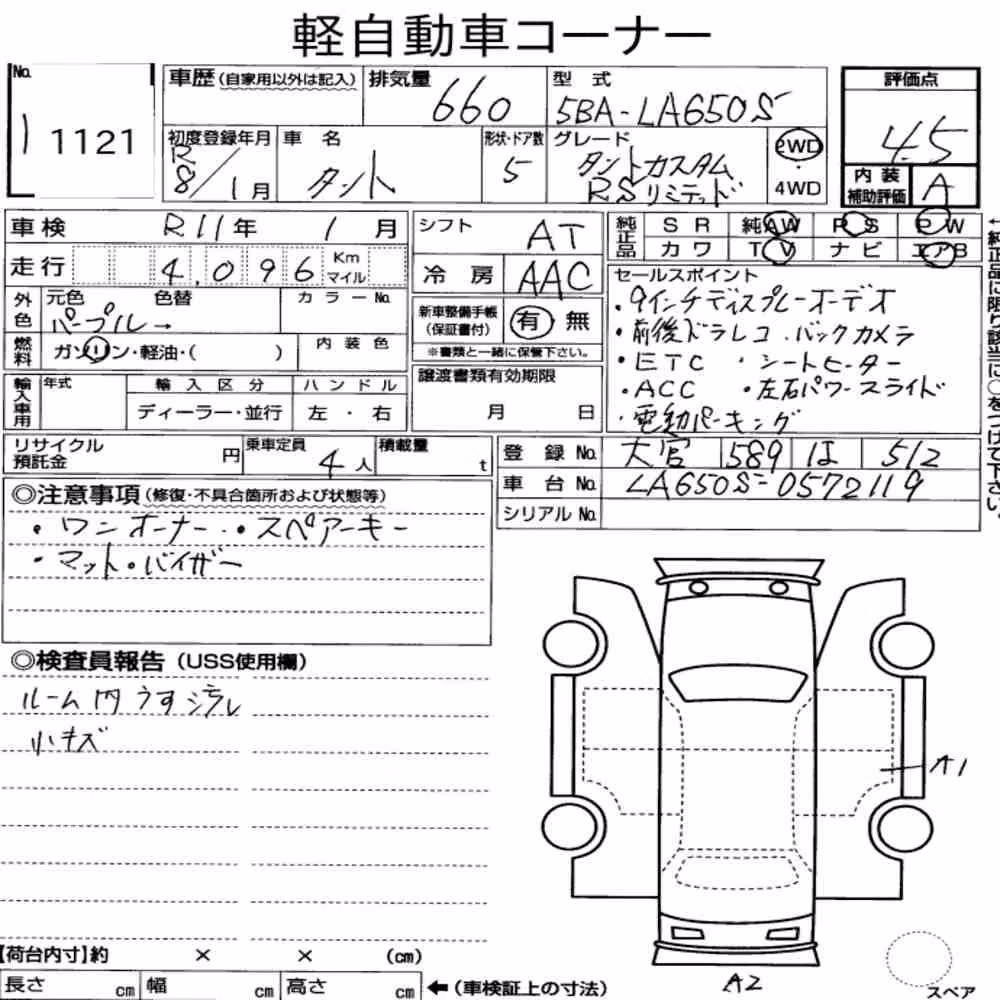 軽自動車コーナー
No. 1 1121
車歴 (自家用以外は記入) 排気量 660 型式 5BA-LA650S
評価点 4.5
初度登録年月 R 8/1月 車名 タント 形状・ドア数 5 グレード タントカスタム RSリミテッド 2WD・4WD
内装補助評価 A
車検 R11年 1月
シフト AT
純正品 SR 純AW PS PW
カワ TV ナビ エアB
走行 4,096 Km マイル
冷房 AAC
←純正品に限り該当に○をつけて下さい。
外色 元色 色替 カラーNo.
パープル→
新車整備手帳(保証書付) 有 無
※書類と一緒に保管下さい。
燃料 ガソリン・軽油・( ) 内装色
セールスポイント
・9インチディスプレーオーデオ
・前後ドラレコ.バックカメラ
・ETC ・シートヒーター
・ACC ・左右パワースライド
・電動パーキング
輸入車用 年式 輸入区分 ハンドル
ディーラー・並行 左・右
譲渡書類有効期限
月 日
リサイクル預託金 円 乗車定員 4人 積載量 t
登録No. 大宮 589 は 512
車台No. LA650S-0572119
シリアルNo.
◎注意事項(修復・不具合箇所および状態等)
・ワンオーナー・・スペアーキー
・マット・バイザー
◎検査員報告(USS使用欄)
ルーム内うすヨゴレ
小キズ
A1
【荷台内寸】約 × × (cm)
長さ cm 幅 cm 高さ cm ←(車検証上の寸法)
A2
スペア